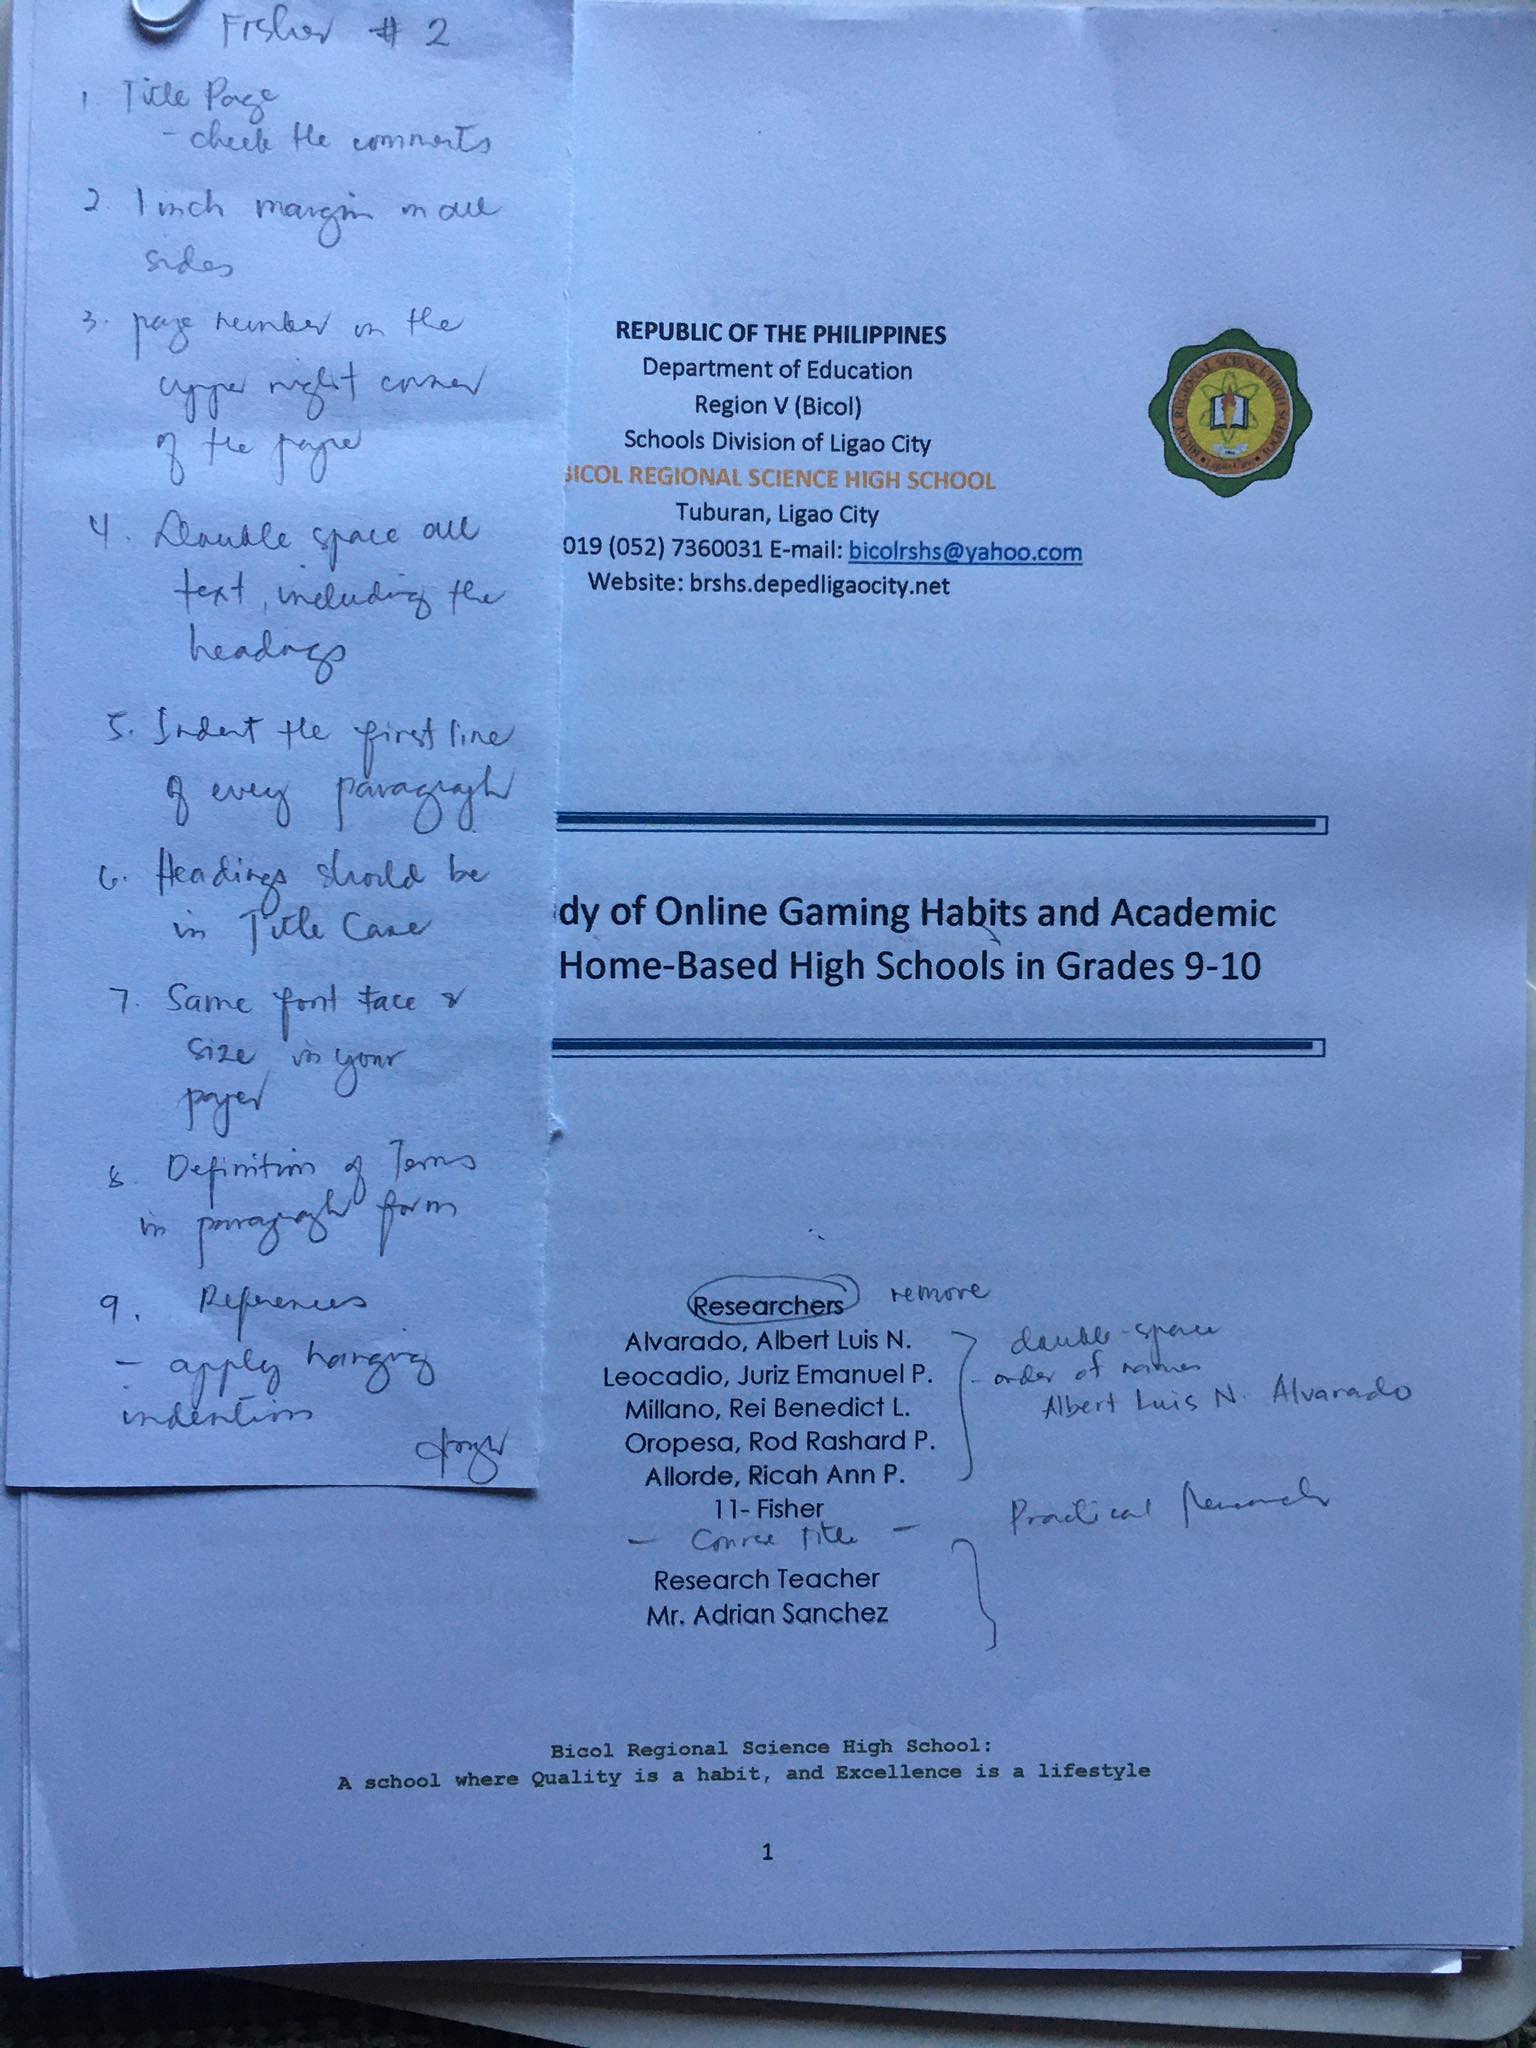 Fisher # 2
1. Title Page
- check the comments
2. 1 inch margin in all
sides
3. page number in the
upper right corner
of the paper
4. Double space all
text, including the
headings
5. Indent the first line
of every paragraph
6. Headings should be
in Title Case
7. Same font face &
size in your
paper
8. Definition of Terms
in paragraph form
9. References
- apply hanging
indention
REPUBLIC OF THE PHILIPPINES
Department of Education
Region V (Bicol)
Schools Division of Ligao City
BICOL REGIONAL SCIENCE HIGH SCHOOL
Tuburan, Ligao City
019 (052) 7360031 E-mail: bicolrshs@yahoo.com
Website: brshs.depedligaocity.net
BICOL REGIONAL SCIENCE HIGH SCHOOL
Ligao City
dy of Online Gaming Habits and Academic
Home-Based High Schools in Grades 9-10
Researchers remove
Alvarado, Albert Luis N. double-space
Leocadio, Juriz Emanuel P. - order of names
Millano, Rei Benedict L. Albert Luis N. Alvarado
Oropesa, Rod Rashard P.
Allorde, Ricah Ann P.
11- Fisher Practical Research
- Course Title -
Research Teacher
Mr. Adrian Sanchez
Bicol Regional Science High School:
A school where Quality is a habit, and Excellence is a lifestyle
1